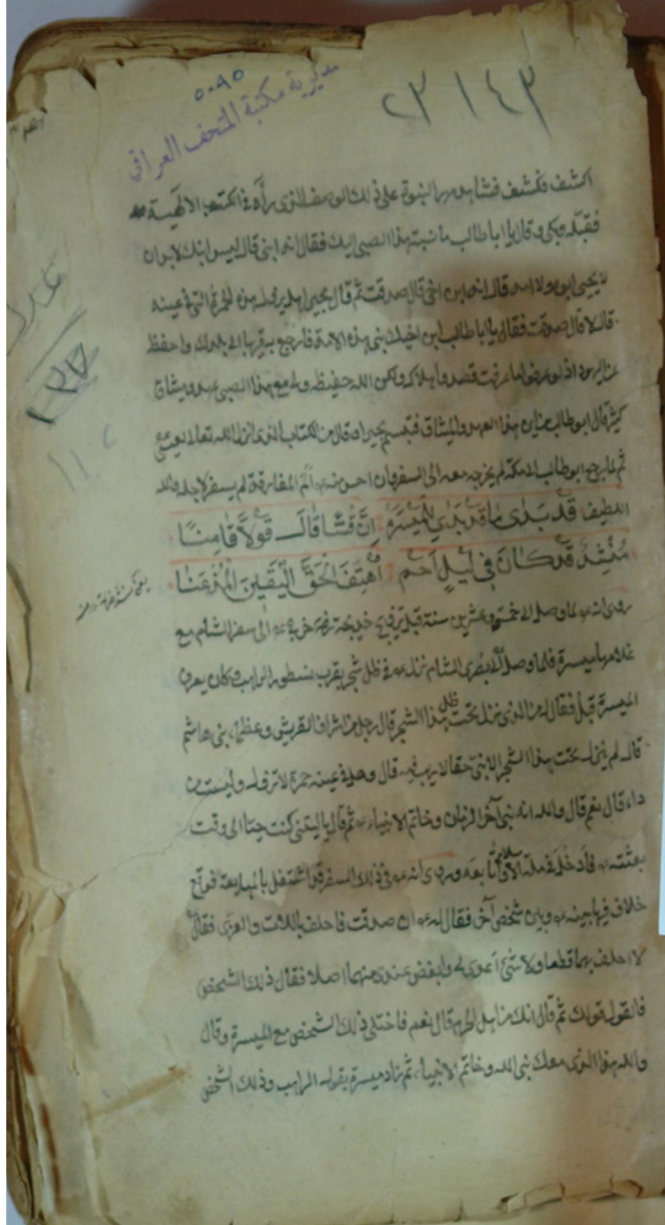 ٥٠٨٥
مديرية مكتبة المتحف العراقي
٢٣١٤٣
اكشف فكشف فشاهد مهر النبوة على ذلك الوصف الذى رآه فى الكتب الالهية
فقبّله وبكى وقال يا ابا طالب ما نسبة هذا الصبى اليك فقال انه ابنى قال ليس ابنك لابد ان
لا يحيى ابوه ولا امه قال انه ابن اخى قال صدقت ثم قال بحيرا هل يزول هذه الحمرة التى فى عينه
قال لا قال صدقت فقال يا ابا طالب ابن اخيك نبى هذه الامة فارجع به قريبا الى بلدك واحفظ
عن اليهود اذ لو عرفوا ما عرفت قصدوا هلاكه ولكن الله حفيظه ولى مع هذا الصبى عهد وميثاق
كثير قال ابو طالب من اين هذا العهد والميثاق فتبسم بحيرا وقال من الكتاب الذى انزل الله تعالى لعيسى
ثم لما رجع ابو طالب الى مكة لم يخرجه معه الى السفر وان احس منه الم المفارقة لم يسفر لاجله والله
اللطيف قد بدى ما قد بدى لميسره ان فشا قال قولا قامنا
منشد قد كان فى ليل احم اهتف الحق اليقين المذعنا
روى انه لما وصل الى خمس وعشرين سنة قبل تزويج خديجة رضه خرج الى سفر الشام مع
غلامها ميسرة فلما وصلا الى بصرى الشام نزل فى ظل شجر بقرب نسطور الراهب وكان يعرف
الميسرة قبل فقال له من الذى نزل تحت ظل هذا الشجر قال رجل من اشراف القريش وعظماء بنى هاشم
قال لم ينزل تحت هذا الشجر الا نبى حقا لا ريب فيه قال وهل فى عينه حمرة لا تزول وليست من
داء قال نعم قال والله انه نبى آخر الزمان وخاتم الانبياء ثم قال يا ليتنى كنت حيّا الى وقت
بعثته فأدخل فى ملة الاسلام تابعه وروى انه فى ذلك السفر قد اشتغل بالمبايعة فوقع
خلاف فيما بينه وبين شخص آخر فقال له ان صدقت فاحلف باللات والعزى فقال
لا احلف بهما قطعا ولا شئ اعدى لى وابغض عندى منهما اصلا فقال ذلك الشخص
فالقول قولك ثم قال انك من اهل الحرم قال نعم فاختلى ذلك الشخص مع الميسرة وقال
والله هذا الذى معك نبى الله وخاتم الانبياء ثم زاد ميسرة بقول الراهب وذلك الشخص